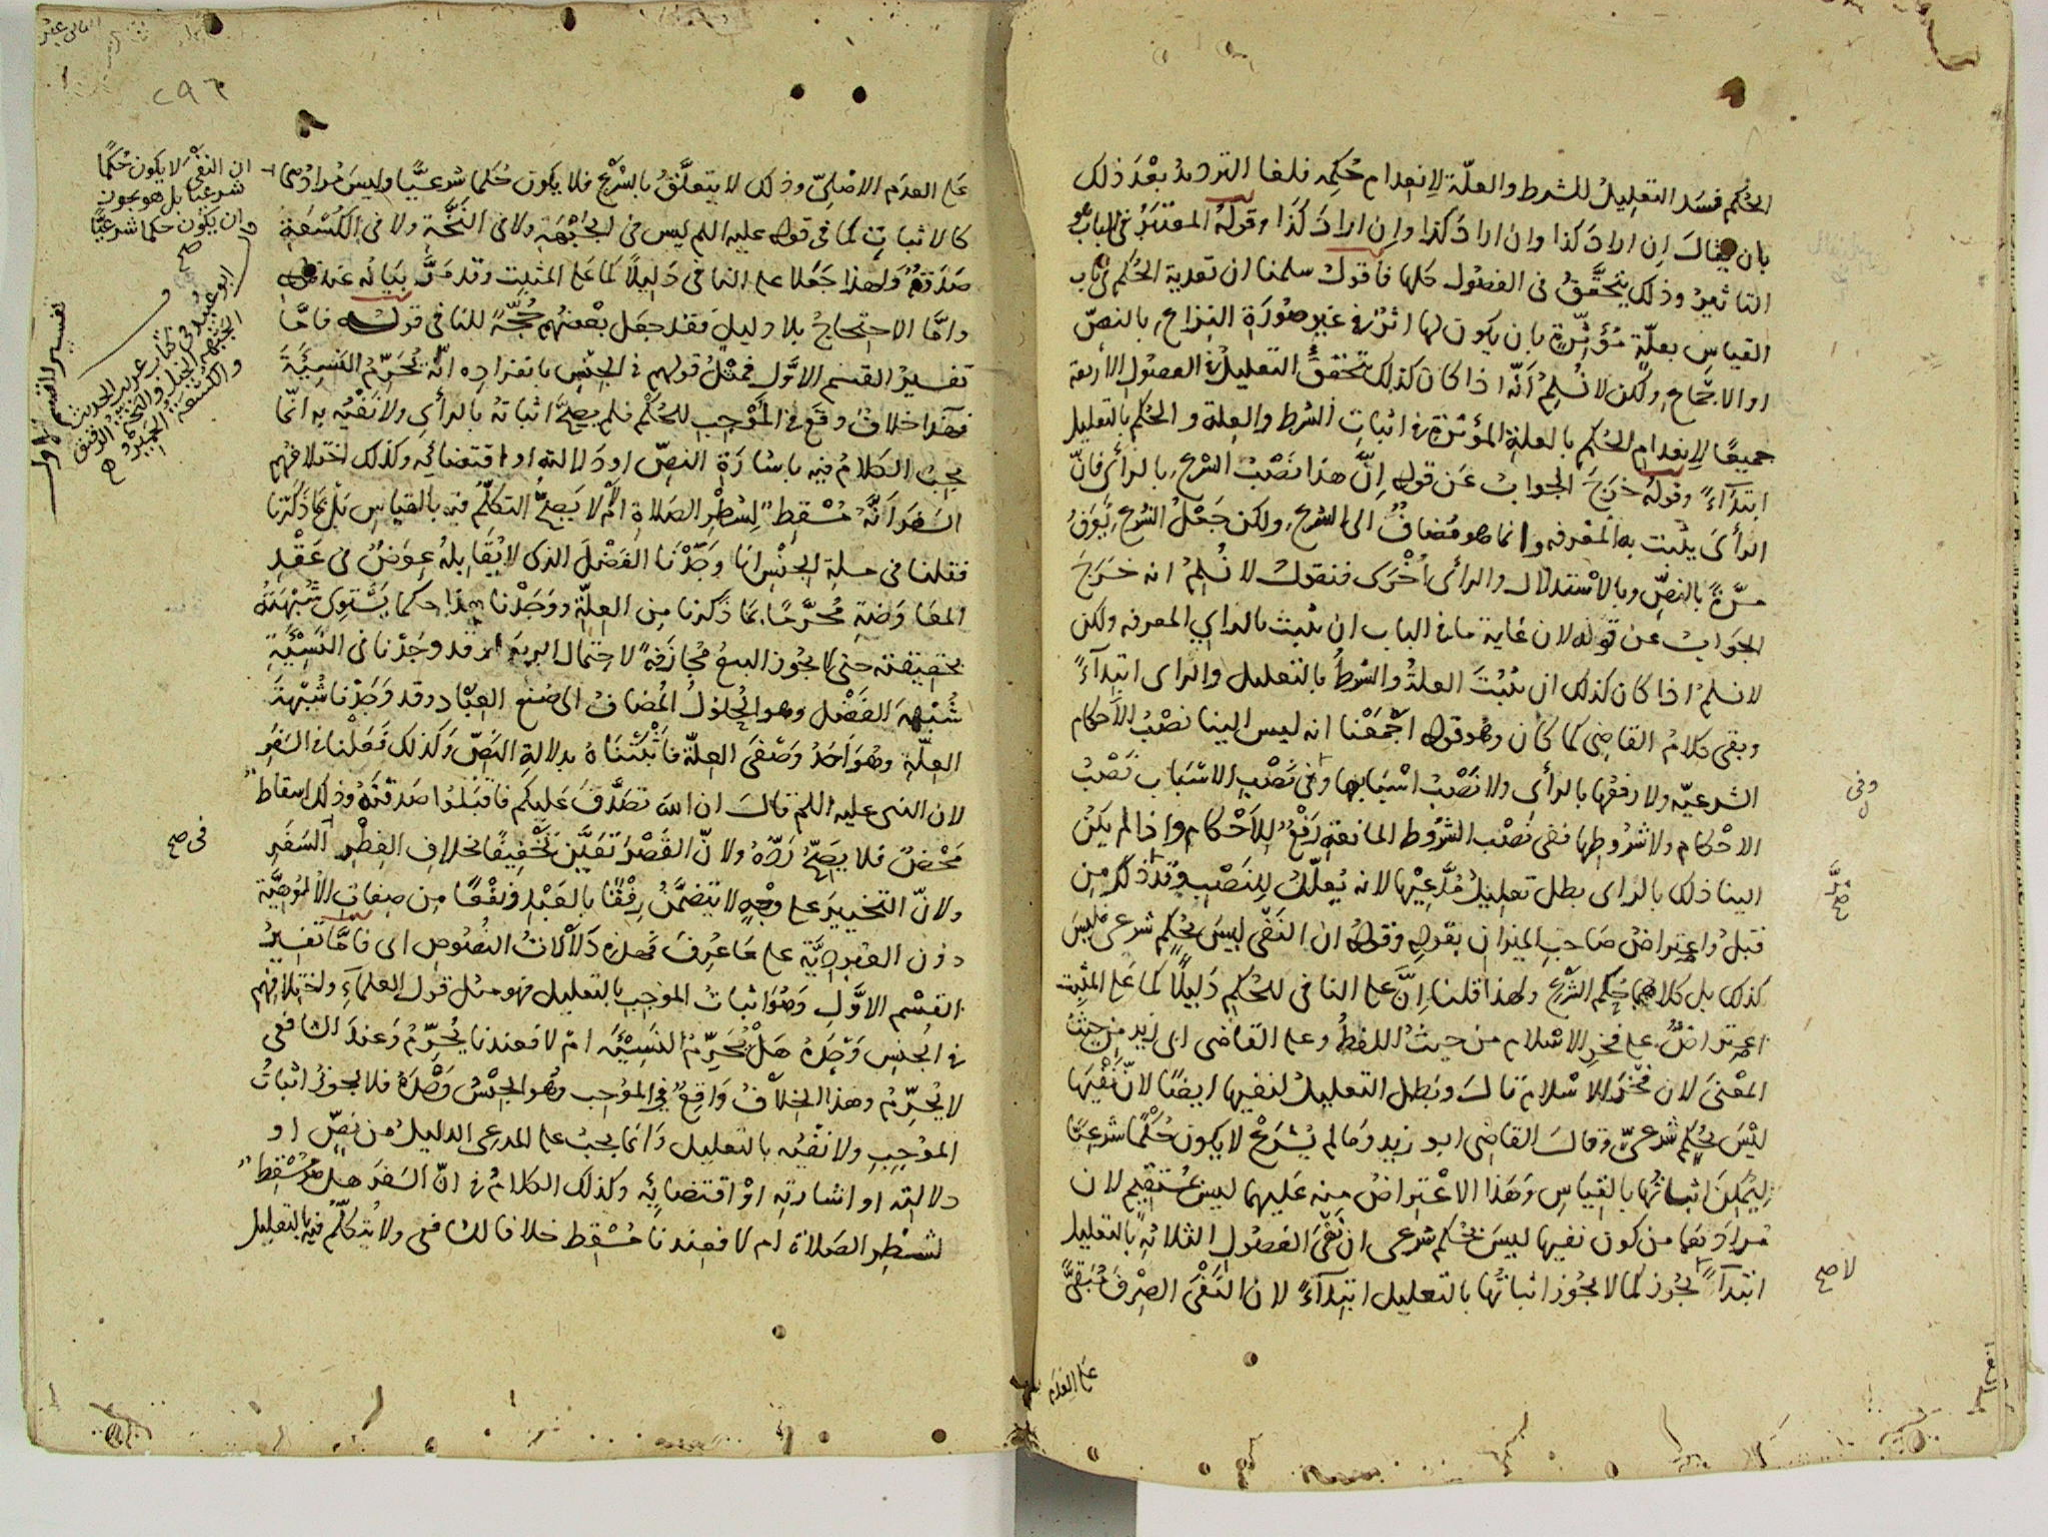 الحكم فسد التعليل للشرط والعلّة لانعدام حكمه فلغا الترديد بعد ذلك
بان يقال ان اراد كذا وان اراد كذا وان اراد كذا وقوله المعتبر فى الباب هو
التاثير وذلك يتحقق فى الفصول كلها فاقول سلمنا ان تعدية الحكم فى باب
القياس بعلّة مؤثّرة بان يكون لها اثر فى غير صورة النزاع بالنصّ
او الاجماع ولكن لا نسلم انّه اذا كان كذلك تحقق التعليل فى الفصول الأربعة
جميعًا لانعدام الحكم بالعلة المؤثرة فى اثبات الشرط والعلة والحكم بالتعليل
ابتدآءً وقوله خرج الجواب عن قوله انّ هذا نصب الشرع بالرأى فانّ
الرأى يثبت به المعرفه وانما هو مضاف الى الشرع ولكن جعل الشرع يعرف
مرّة بالنصّ وبالاستدلال والرأى اخرى فنقول لا نسلم انه خرج
الجواب عن قوله لان غاية ما فى الباب ان يثبت بالراي المعرفه ولكن
لا نسلم اذا كان كذلك ان يثبت العلة والشرط بالتعليل والراى ابتدآءً
وبقى كلام القاضى كما كان وهو قوله اجمعنا انه ليس الينا نصب الأحكام
الشرعيّه ولا رفعها بالرأى ولا نصب اسبابها وفى نصب الاسباب نصب
وفى
الاحكام ولا شروطها ففى نصب الشروط المانعة رفع للأحكام واذا لم يكن
الينا ذلك بالراى بطل تعليل مدّعيها لانه يعلّل للنصب وقد ذكر من
مرّ صح
قبل واعتراض صاحب الميزان بقوله وقوله ان النفى ليس بحكم شرعى فليس
كذلك بل كلاهما حكم الشرع ولهذا قلنا انّ على النافى للحكم دليلًا كما على المثبت
اعتراض على فخر الاسلام من حيث اللفظ وعلى القاضى ابى زيد من حيث
المعنى لان فخر الاسلام قال وبطل التعليل لنفيها ايضًا لانّ نفيها
ليس بحكم شرعىّ وقال القاضى ابو زيد وما لم يشرع لا يكون حكمًا شرعيًا
ليمكن اثباتها بالقياس وهذا الاعتراض منه عليهما ليس بمستقيم لان
مرادهما من كون نفيها ليس بحكم شرعى ان نفى الفصول الثلاثة بالتعليل
ابتدآءً يجوز كما لا يجوز اثباتها بالتعليل ابتدآءً لان النفى الصرف مبقى
لا صح
على العدم
٢٩٦
على العدم الاصلىّ وذلك لا يتعلّق بالشرع فلا يكون حكما شرعيًّا وليس مرادهما
ان النفى لا يكون حكمًا
شرعيًا بل هو يجوز
ان يكون حكما شرعيًّا
صح
كالاثبات كما فى قوله عليه السلم ليس فى الجبهة ولا فى النخّة ولا فى الكسعة
صدقة ولهذا جعلا على النافى دليلًا كما على المثبت وقد مرّ بيانه عند قوله
وامّا الاحتجاج بلا دليل فقد جعل بعضهم حجّة للنافى قوله فامّا
تفسير القسم الاوّل فمثل قولهم فى الجنس بانفراده انّه يحرّم النسيئة
فهذا خلاف وقع فى الموجب للحكم فلم يصحّ اثباته بالرأي ولا نفيه به انّما
يجب الكلام فيه باشارة النصّ او دلالته او اقتضائه وكذلك اختلافهم
تفسير القسم الاول
ابو عبيد فى كتاب غريب الحديث
الجبهة الخيل والنخة الرقيق
والكسعة الحمير
السفر انّه مسقط لشطر الصلاة ام لا يصحّ التكلّم فيه بالقياس بل بما ذكرنا
فقلنا فى مسلة الجنس انا وجدنا الفضل الذى لا يقابله عوض فى عقد
المعاوضة محرّمًا بما ذكرنا من العلّة ووجدنا هذا حكما يستوى شبهته
بحقيقته حتى لا يجوز البيع مجازفة لاحتمال الربوا وقد وجدنا فى النسيئة
شبهة الفضل وهو الحلول المضاف الى صنع العباد وقد وجدنا شبهة
العلّة وهو احد وصفى العلّة فاثبتناه بدلالة النصّ وكذلك فعلنا فى السفر
لان النبى عليه السلم قال ان الله تصدّق عليكم فاقبلوا صدقته وذلك اسقاط
محض فلا يصحّ ردّه ولانّ القصر تعيّن تخفيفًا بخلاف الفطر السفر
فى صح
ولانّ التخيير على وجه لا يتضمّن رفقًا بالعبد ونفعًا من صفات الالوهيّة
دون العبوديّة على ما عرف فهذه دلالات النصوص اى فامّا تفسير
القسم الاوّل وهو اثبات الموجب بالتعليل فهو مثل قول العلمآء واختلافهم
فى الجنس وحده هل يحرّم النسيئة ام لا فعندنا يحرّم وعند الشافعى
لا يحرّم وهذا الخلاف واقع فى الموجب وهو الجنس وحده فلا يجوز اثبات
الموجب ولا نفيه بالتعليل وانما يجب على المدعى الدليل من نصّ او
دلالته او اشارته او اقتضائه وكذلك الكلام فى انّ السفر هل هو مسقط
لشطر الصلاة ام لا فعندنا مسقط خلافا للشافعى ولا يتكلّم فيه بالتعليل